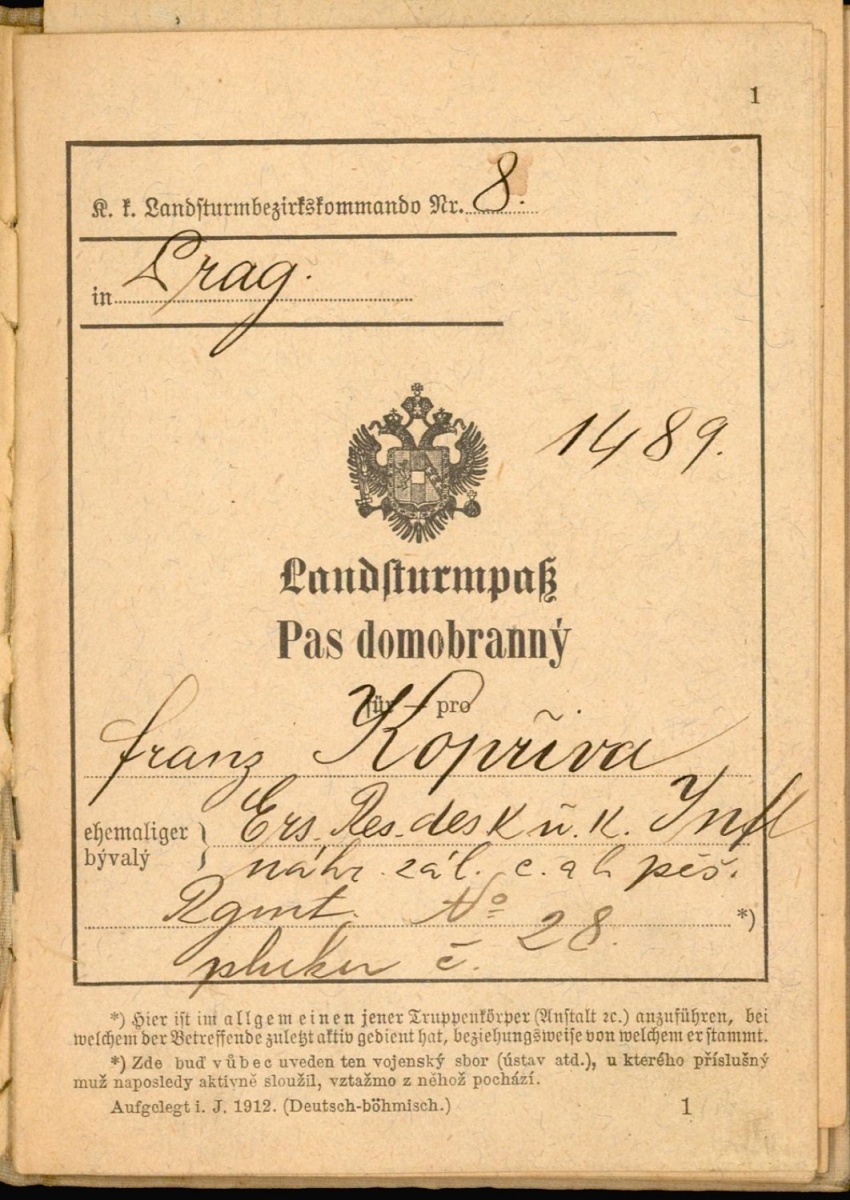 1
K. k. Landsturmbezirkskommando Nr. 8.
in Prag.
1489.
Landsturmpaß
Pas domobranný
für — pro
Franz Kopřiva
ehemaliger } Ers. Res. des k u. k. Inft
bývalý } náhr. zál. c. a k. pěš.
Rgmt. No 28. *)
pluku č.
*) Hier ist im allgemeinen jener Truppenkörper (Anstalt ꝛc.) anzuführen, bei
welchem der Betreffende zuletzt aktiv gedient hat, beziehungsweise von welchem er stammt.
*) Zde buď vůbec uveden ten vojenský sbor (ústav atd.), u kterého příslušný
muž naposledy aktivně sloužil, vztažmo z něhož pochází.
Aufgelegt i. J. 1912. (Deutsch-böhmisch.) 1